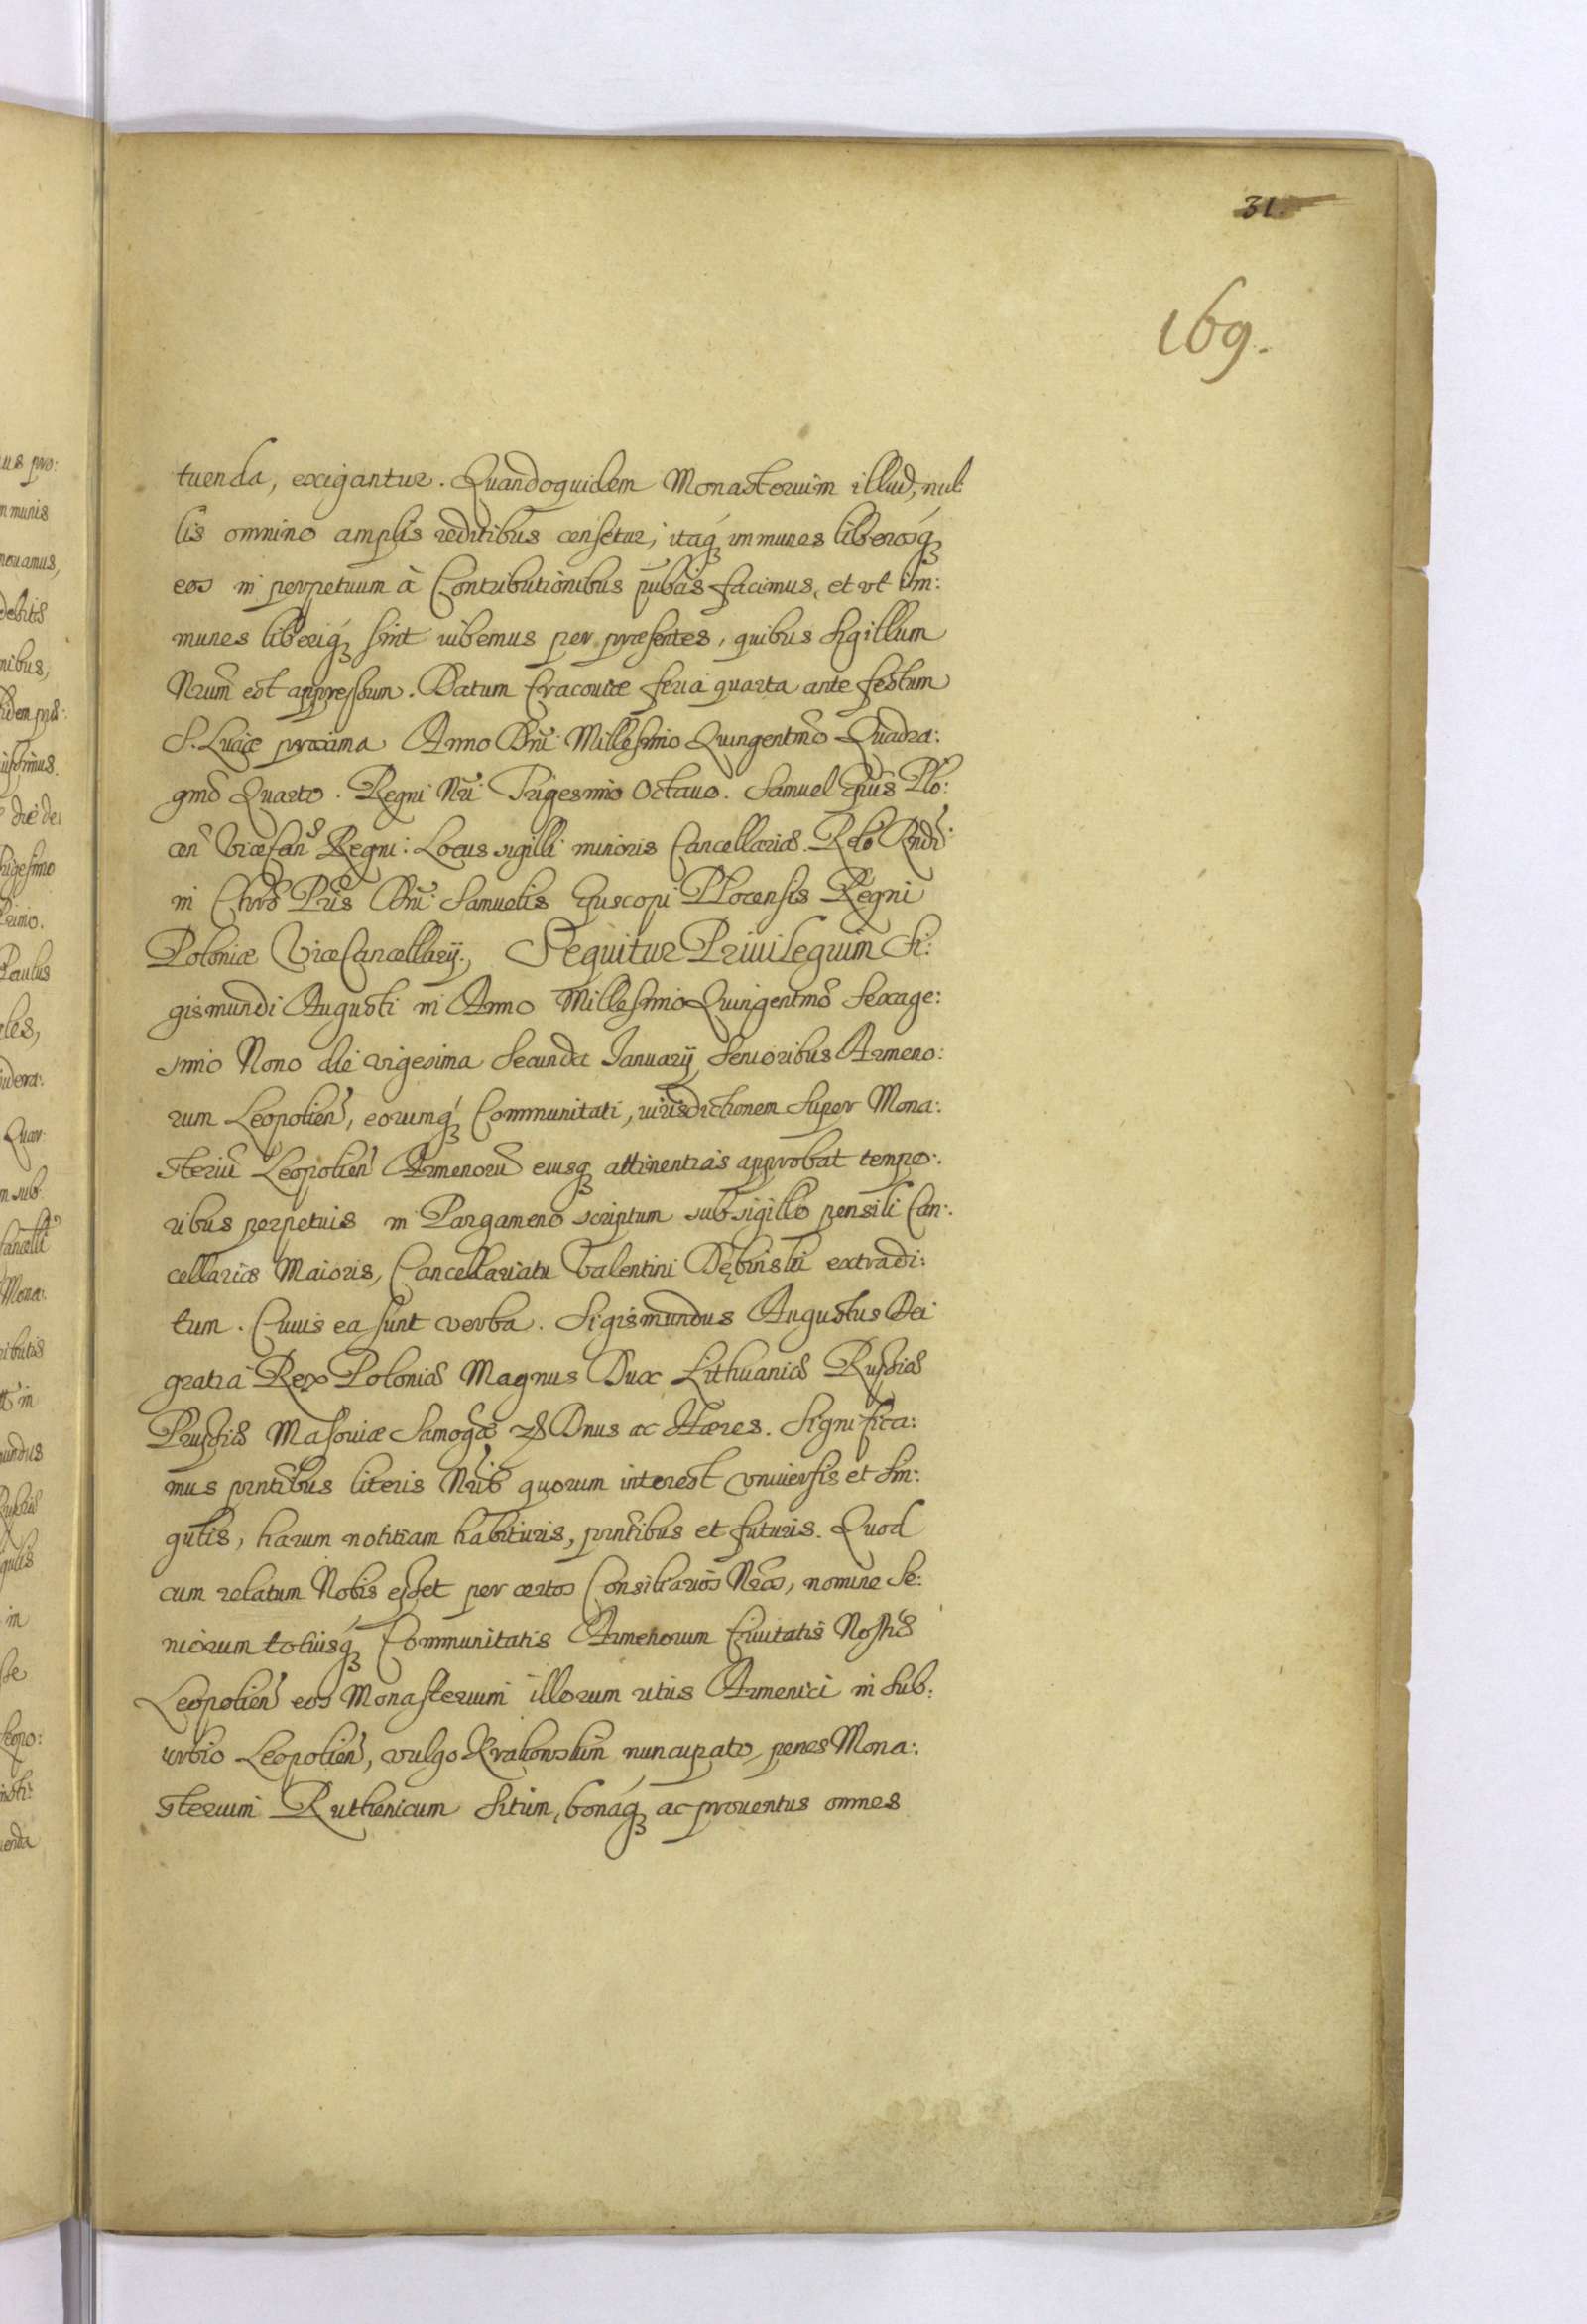 31.
169.
tuenda, exigantur. Quandoquidem Monasterium illud, nul:
lis omnino amplis reditibus censetur, itaq́ immunes liberosq́
eos in perpetuum à Contributionibus pub̃cis facimus, et vt im:
munes liberiq́ sint iubemus per præsentes, quibus sigillum
Nrũm est appressum. Datum Cracouiæ feria quarta ante festum
S. Luciæ proxima Anno Dñi Millesimo Quingentmõ Quadra:
gmõ Quarto. Regni Nri Trigesimo Octauo. Samuel Epũs Plo:
cen̄ ViceCan̄s Regni: Locus sigilli minoris Cancellariæ. Relõ Rndi
in Chrõ Pris Dñi Samuelis Episcopi Plocensis Regni
Poloniæ ViceCancellarij, Sequitur Priuilegium Si:
gismundi Augusti in Anno Millesimo Quingentmõ Sexage:
simo Nono die vigesima Secunda Ianuarij, Senioribus Armeno:
rum Leopolien̄, eorumq́ Communitati, iurisdictionem super Mona:
steriũ Leopolien̄ Armenorũ eiusq attinentias approbat tempo:
ribus perpetuis in Pargameno scriptum sub sigillo pensili Can:
cellariæ Maioris, Cancellariatu Valentini Dębinski extradi:
tum. Cuius ea sunt verba. Sigismundus Augustus Dei
gratia Rex Poloniæ Magnus Dux Lithuaniæ Russiæ
Prussiæ Masouiæ Samogæ etc Dnus ac Hæres. Significa:
mus prntĩbus literis Nrĩs quorum interest vniuersis et sin:
gulis, harum notitiam habituris, prntĩbus et futuris. Quod
cum relatum Nobis esset per certos Consiliarios Nrõs, nomine Se:
niorum totiusq́ Communitatis Armenorum Ciuitatis Nostræ
Leopolien̄ eos Monasterium illorum ritus Armenici in Sub:
urbio Leopolien̄, vulgo Krakowskim nuncupato, penes Mona:
sterium Ruthenicum situm, bonaq́ ac prouentus omnes